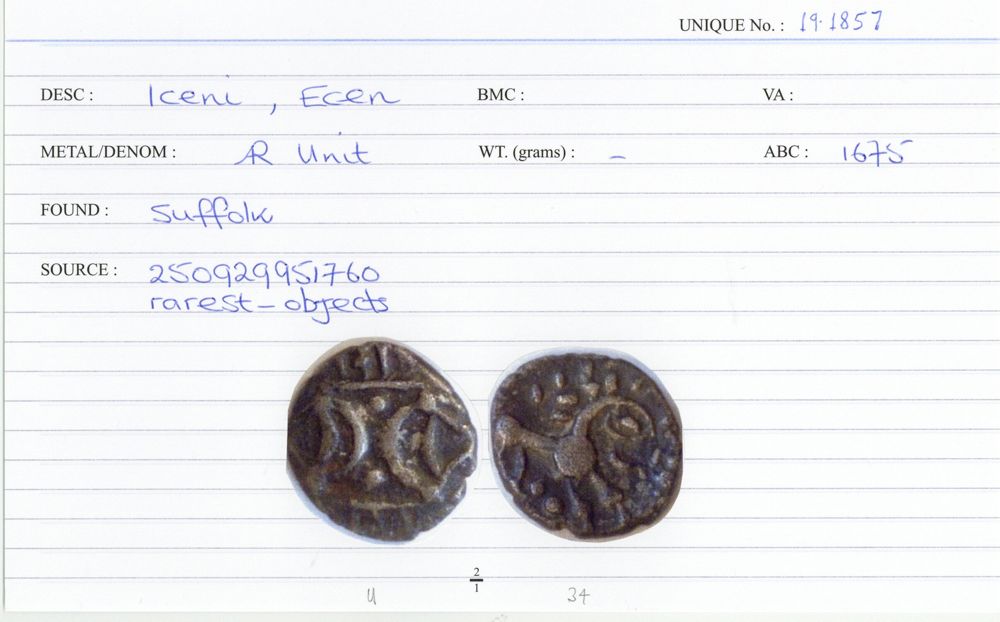 UNIQUE No. : 19.1857
DESC : Iceni, Ecen BMC : VA :
METAL/DENOM : AR Unit WT. (grams) : – ABC : 1675
FOUND : Suffolk
SOURCE : 250929951760
rarest-objects
2
1
U 34